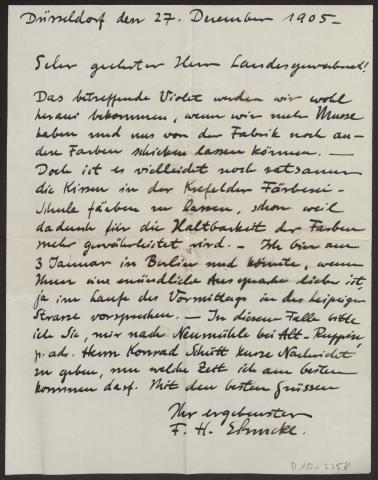 Düsseldorf den 27. Dezember 1905 –
Sehr geehrter Herr Landesgewerberat!
Das betreffende Violet werden wir wohl
heraus bekommen, wenn wir mehr Musse
haben und uns von der Fabrik noch an-
dere Farben schicken lassen können. —
Doch ist es vielleicht noch ratsamer
die Kissen in der Krefelder Färberei-
Schule färben zu lassen, schon weil
dadurch für die Haltbarkeit der Farben
mehr gewährleistet wird. – Ich bin am
3 Januar in Berlin und könnte, wenn
Ihnen eine mündliche Aussprache lieber ist,
ja im Laufe des Vormittags in der Leipziger
Strasse vorsprechen. — In diesem Falle bitte
ich Sie, mir nach Neumühle bei Alt-Ruppin,
p. adr. Herrn Konrad Schütt kurze Nachricht
zu geben, um welche Zeit ich am besten
kommen darf. Mit den besten Grüssen
Ihr ergebenster
F. H. Ehmcke.
D 10-2258